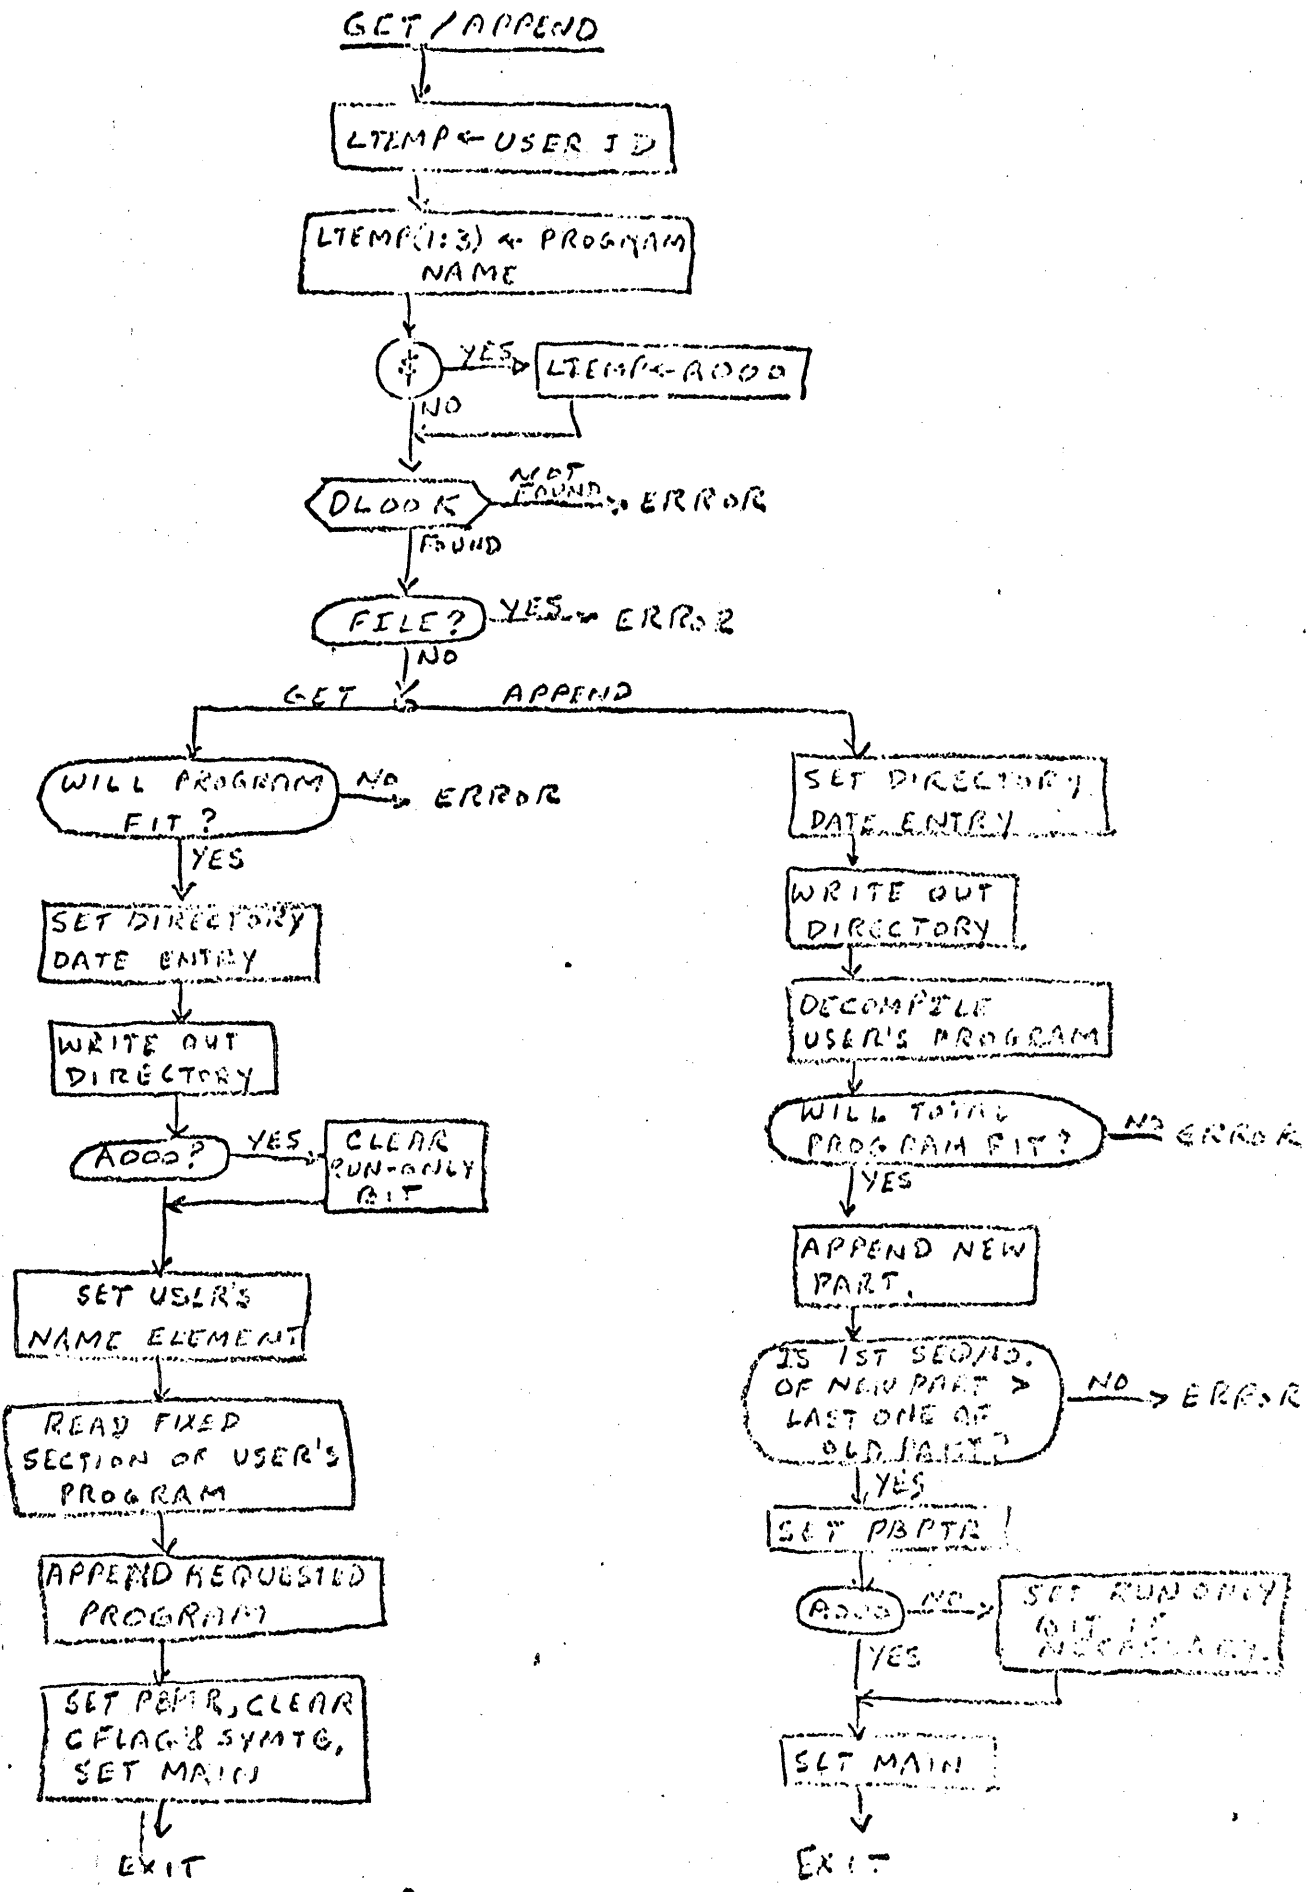 GET/APPEND
LTEMP←USER ID
LTEMP(1:3) ← PROGRAM
NAME
$
YES
LTEMP←A000
NO
DLOOK
NOT
FOUND
ERROR
FOUND
FILE?
YES
ERROR
NO
GET
APPEND
WILL PROGRAM
FIT?
NO
ERROR
YES
SET DIRECTORY
DATE ENTRY
WRITE OUT
DIRECTORY
A000?
YES
CLEAR
RUN-ONLY
BIT
SET USER'S
NAME ELEMENT
READ FIXED
SECTION OF USER'S
PROGRAM
APPEND REQUESTED
PROGRAM
SET PBPTR, CLEAR
CFLAG & SYMTB,
SET MAIN
EXIT
SET DIRECTORY
DATE ENTRY
WRITE OUT
DIRECTORY
DECOMPILE
USER'S PROGRAM
WILL TOTAL
PROGRAM FIT?
NO
ERROR
YES
APPEND NEW
PART.
IS 1ST SEQ/NO.
OF NEW PART >
LAST ONE OF
OLD PART?
NO
ERROR
YES
SET PBPTR
A000
NO
SET RUN ONLY
BIT IF
NECESSARY.
YES
SET MAIN
EXIT